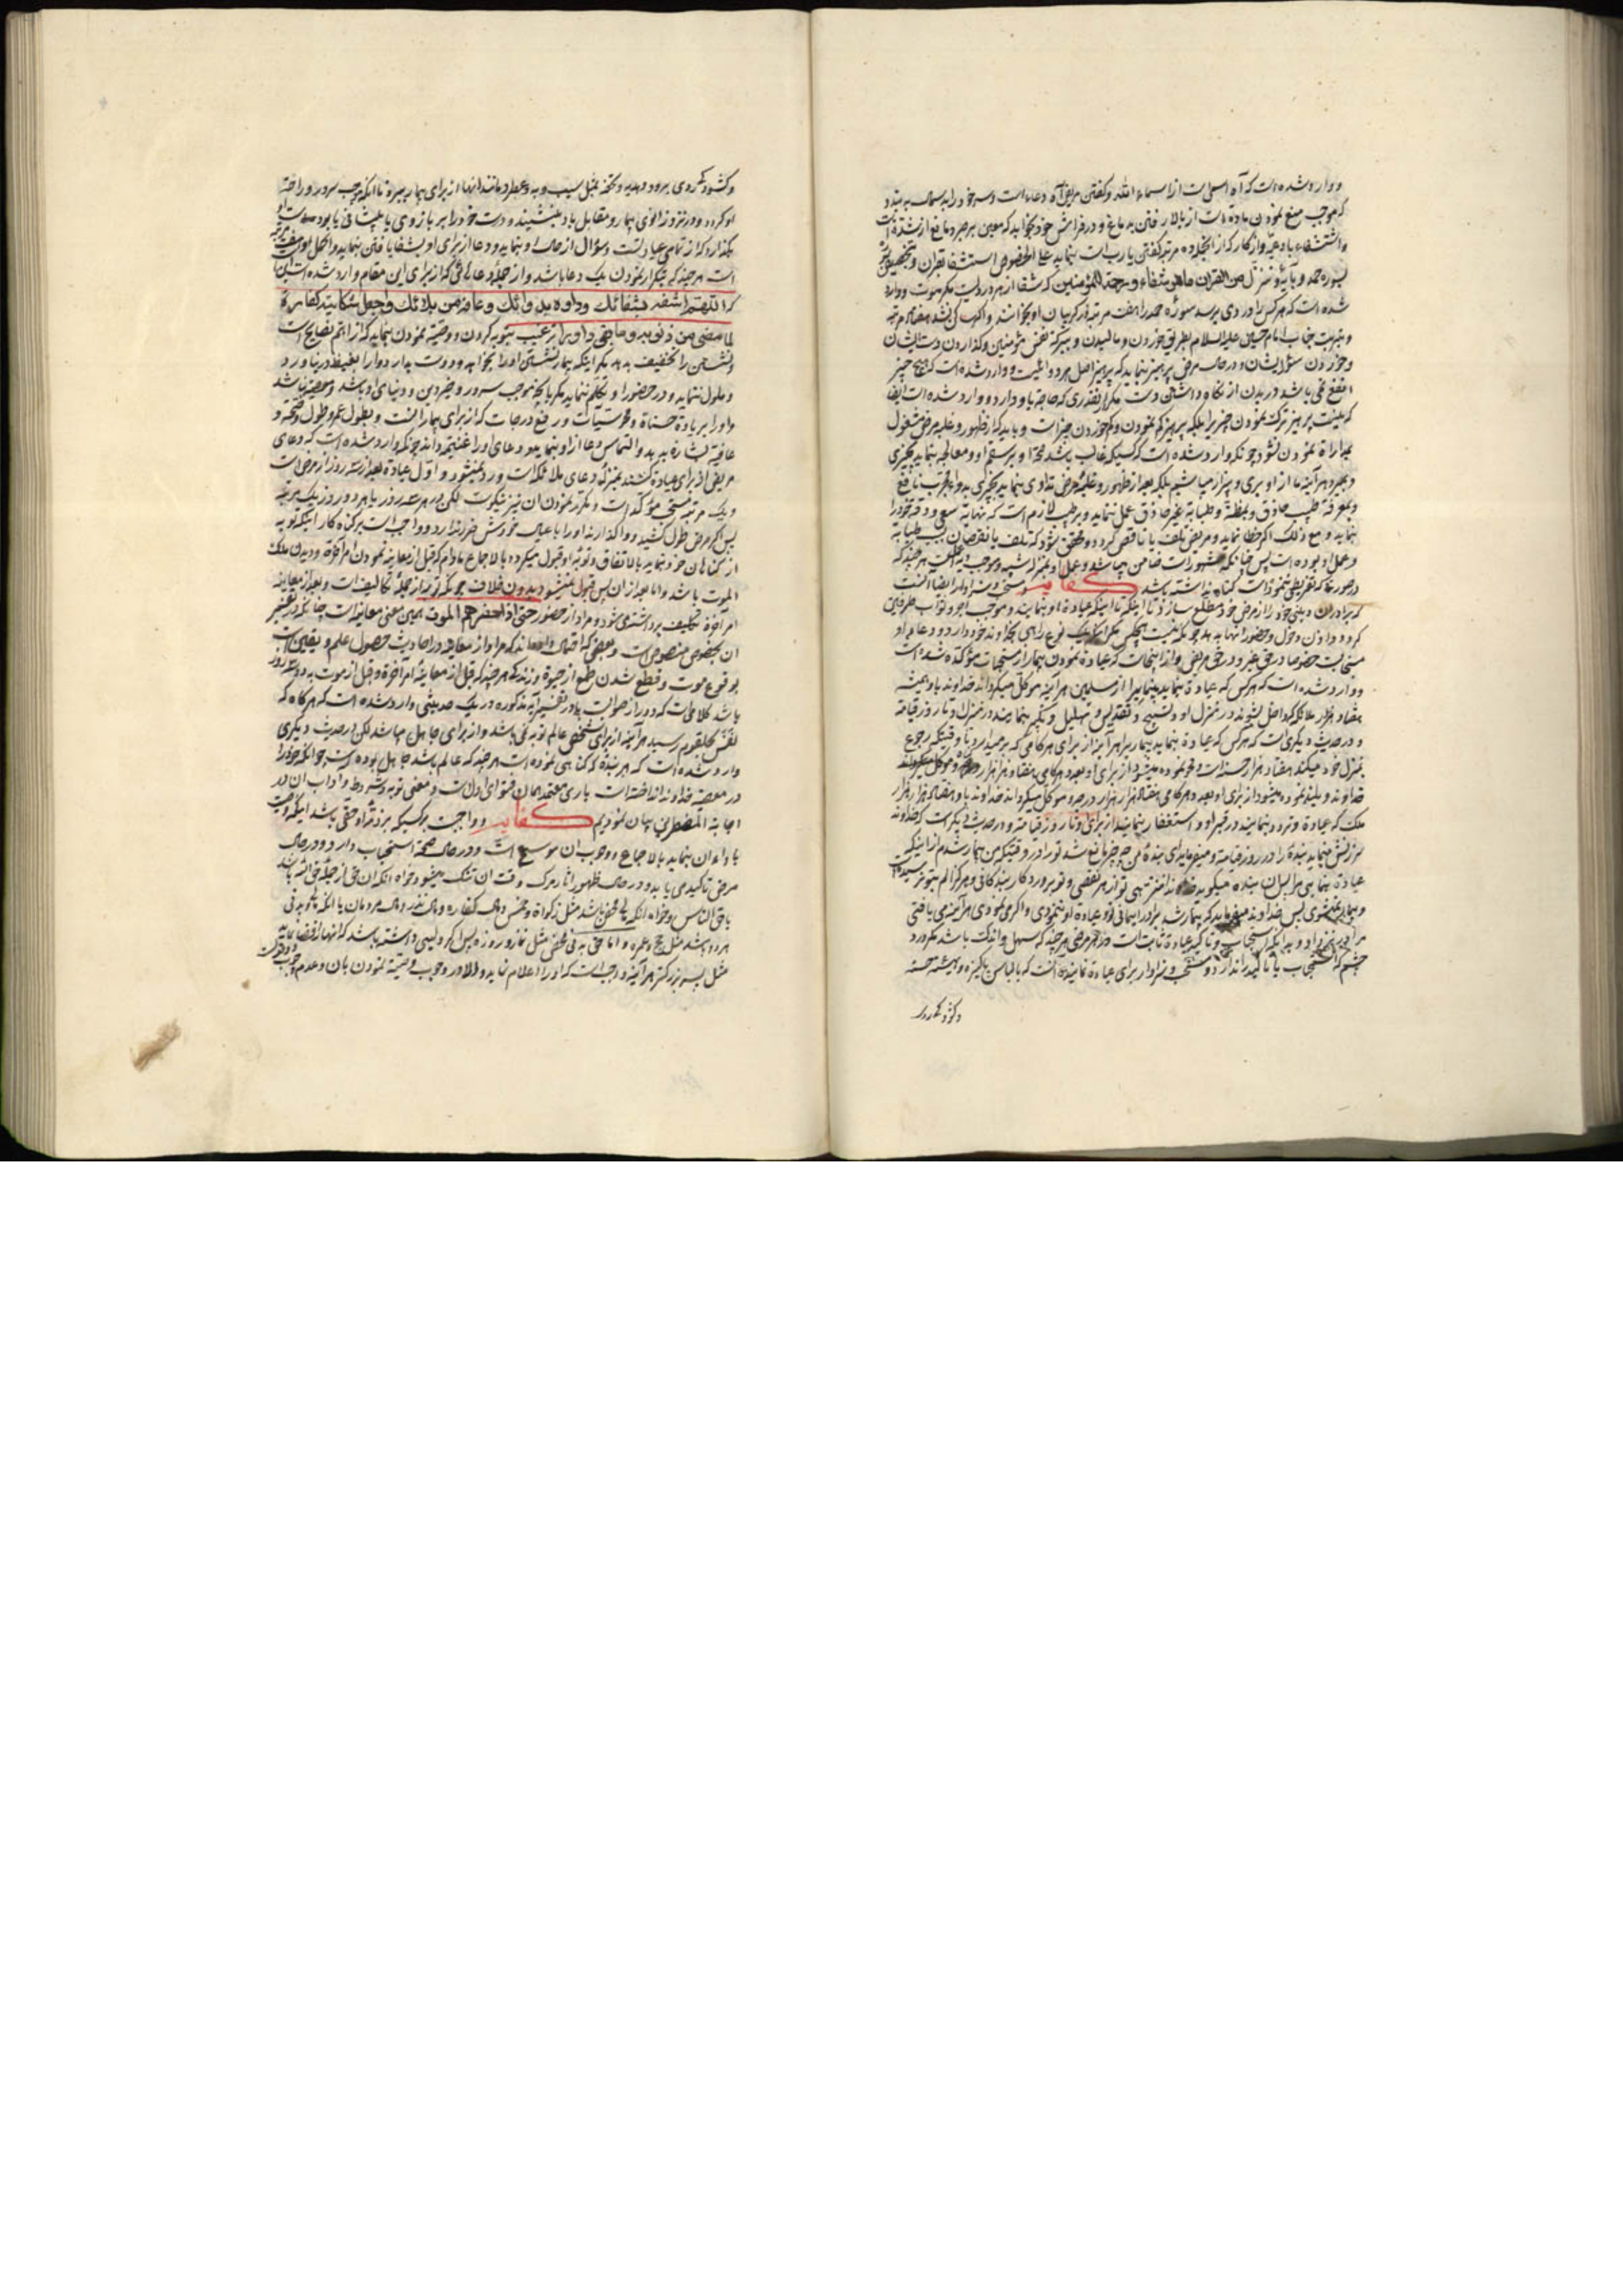 ووارد شده است که آه اسمی است از اسماء الله وکفتن مریض آه دعاء است وسر خود را بدسمال به بندد
که موجب منع نمودن ماده است از بالا رفتن به دماغ و در فراش خود بخوابد که معین بر صبر و مانع از شده است
واستشفاء بادعیه واذکار که از انجمله ده مرتبه کفتن یا رب است بنماید علی الخصوص استشفا بقران وتخصیص
بسوره حمد وبآیه وننزل من القران ماهو شفاء ورحمة للمؤمنین که شفا از هر درد است مکر موت ووارد
شده است که هر کس را دردی برسد سوره حمد را هفت مرتبه در کریبان او بخوانند واکر ساکن نشد هفتاد مرتبه
وبتربت جناب امام حسین علیه السلام بطریق خوردن ومالیدن وببرکة نفس مؤمنین وکذاردن دست ایشان
وخوردن سؤر ایشان ودر حال مرض پرهیز نماید که پرهیز اصل هر دوائیست ووارد شده است که هیچ چیز
انفع نمی باشد در بدن از نکاه داشتن دست مکر بقدری که حاجة باو دارد ووارد شده است ایضا
که نیست پرهیز ترک نمودن چیز را بلکه پرهیز کم نمودن وکم خوردن چیز است وباید که از ظهور وغلبه مرض مشغول
بمداراة نمودن نشود چونکه وارد شده است که کسیکه غالب باشد صحة او بر سقم او ومعالجه بنماید بچیزی
وبمیرد هر آینه ما از او بری وبیزار میباشیم بلکه بعد از ظهور وغلبه مرض تداوی بنماید بچیزی بدواء مجرب نافع
وبمعرفة طبیب حاذق وبمظنة وطبابة غیر حاذق عمل ننماید وبر طبیب لازم است که نهایة سعی ودقه خود را
بنماید ومع ذلک اکر خطا نماید ومریض تلف یا ناقص کردد ومحقق شود که تلف یا نقصان بسبب طبابة
وعمل او بوده است پس چنانکه مشهور است ضامن میباشد
در صورتیکه تقریطی ننموده است کناه نداشته باشد کفایه ومستحب وسزاوار ایضا آنست
که برادران دینی خود را از مرض خود مطلع سازد تا اینکه عیادة او بنمایند وموجب اجر وثواب طرفین
کردد واذن دخول وحضور انها بدهد چونکه نیست هیچکس مکر
مستجابست خصوصا در حق غیر ودر حق مریض واز اینجاست که عیادة نمودن بیمار از مستحبات مؤکده شده است
ووارد شده است که هر کس که عیادة بنماید بیماری را از مسلمین هر آینه موکل میکرداند خداوند باو همیشه
هفتاد هزار ملائکه که داخل بشوند در منزل او وتسبیح وتقدیس وتهلیل وتکبیر بنمایند در منزل او تا روز قیامة
ودر حدیث دیکر است که هر کس که عیادة بنماید بیمار را هر آینه از برای هر کامی که بر میدارد تا وقتیکه رجوع
بمنزل خود میکند هفتاد هزار حسنات ومحو نموده میشود از برای او بعدد هر کامی هفتاد هزار هزار
خداوند وبلند نموده میشود از برای او بعدد هر کامی هفتاد هزار هزار درجه وموکل میکرداند خداوند باو هفتاد هزار هزار
ملک که عیادة وتردد بنمایند در قبر او واستغفار بنمایند از برای او تا روز قیامة ودر حدیث دیکر است که خداوند
سرزنش مینماید بنده را در روز قیامة ومیفرماید ای بنده من چه چیز مانع شد تو را در وقتیکه من بیمار شدم از اینکه
عیادة بنمایی مرا پس ان بنده میکوید
وبیمار نمیشوی پس خداوند میفرماید که بیمار شد برادر ایمانی تو وعیادة او ننمودی واکر می نمودی هر آینه می یافتی
مرا در نزد او وبدانکه استحباب وتأکید عیادة ثابت است در هر مرضی هر چند که سهل واندک باشد مکر درد
چشم که استحباب یا تاکید را ندارد ومستحب وسزاوار برای عیادة نماینده آنست که با لباس پاکیزه وهیئة حسنة
وکشود کی روی
وکشود کی روی برود وهدیه وتحفه مثل سیب وبه وعطر ومانند انها از برای بیمار ببرد تا آنکه موجب سرور وراحة
او کردد ودر نزد زانوی بیمار ومقابل باو بنشیند ودست خود را بر بازوی یا پیشانی یا بر دست او
بکذارد که از تمامی عیادتست وسؤال از حال او بنماید ودعا از برای او بشفا یافتن بنماید
است هر چند که بتکرار نمودن یک دعا باشد واز جمله دعاهائیکه از برای این مقام وارد شده است اینست
که اللهم اشفه بشفائک وداوه بدوائک وعافه من بلائک واجعل شکایته کفارة
لما مضی من ذنوبه وما بقی واو را ترغیب بتوبه کردن ووصیة نمودن بنماید که از اتم نصایح است
ونشستن را تخفیف بدهد مکر اینکه بیمار نشستن او را بخواهد ودوست بدارد واو را بغیظ در نیاورد
وملول ننماید ودر حضور او تکلم ننماید مکر بانچه موجب سرور وخیر دین ودنیای او باشد ومعصیة نباشد
واو را بزیادة حسناة ومحو سیئات ورفع درجات که از برای بیمار است وبطول عمر وطول صحة و
عافیة بشاره بدهد والتماس دعا از او بنماید ودعای او را غنیمة داند چونکه وارد شده است که دعای
مریض از برای عیادة کننده بمنزله دعای ملائکه است ورد نمیشود واول عیادة بعد از سه روز از مرض است
ویک مرتبه مستحب مؤکد است ومکرر نمودن ان نیز نیکوست لکن در هر سه روز یا هر دو روز یک مرتبه
پس اکر مرض طول کشید واکذارند او را با عیال خودش ضرر ندارد وواجب است بر کناه کار اینکه توبه
از کناهان خود بنماید بالاتفاق وتوبه او قبول میکردد بالاجماع مادام که قبل از معاینه نمودن امر آخرة ودیدن ملک
الموت باشد واما بعد از ان پس قبول نمیشود بدون خلاف چونکه توبه از جمله تکالیف است وبعد از معاینه
امر آخرة تکلیف برداشته میشود ومراد از حضور حتی اذا حضر احدهم الموت همین معنی معاینه است چنانکه در تفسیر
ان بخصوص منصوص است وبعضی از فقها را اعتقاد که مراد از معاینه در احادیث حصول علم ویقین است
بوقوع موت وقطع شدن طمع از حیوة وزندکی هر چند که قبل از معاینه امر آخرة وقبل از موت به دو سه روز
باشد کلامی است که دور از صوابست ودر تفسیر آیه مذکوره در یک حدیثی وارد شده است که هر کاه که
نفس بحلقوم رسید هر آینه از برای شخص عالم توبه نمی باشد واز برای جاهل میباشد لکن در حدیث دیکری
وارد شده است که هر بنده که کناهی نموده است هر چند که عالم باشد جاهل بوده است چونکه خود را
در معصیة خداوند انداخته است باری معتمد همان فتوای اول است ومعنی توبه وشروط واداب ان در
اجابة المضطرین بیان نمودیم کفایه وواجبست بر کسیکه بر ذمه او حقی باشد اینکه وصیت
باداء ان بنماید بالاجماع ووجوب ان موسع است ودر حال صحة استحباب دارد ودر حال
مرض تاکیدی یابد ودر حال ظهور اثار مرک وقت ان تنک میشود خواه انکه ان حق از جمله حق الله باشد
یا حق الناس وخواه انکه مالی محض باشد مثل زکواة وخمس ومال کفاره ومال نذر ومال مردمان یا انکه مالی وبدنی
هر دو باشد مثل حج وعمره واما حق بدنی محض مثل نماز وروزه پس اکر ولیی داشته باشد که انها را قضا نماید
مثل پسر بزرکتر هر آینه واجب است که او را اعلام نماید والا در وجوب وصیة نمودن بان وعدم وجوب